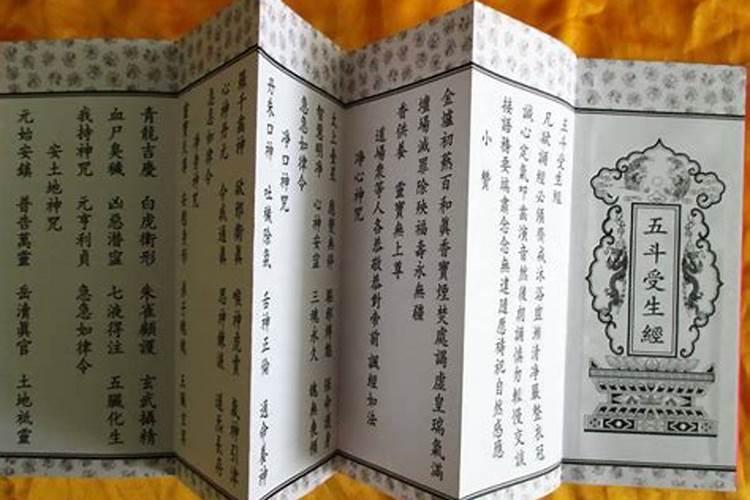 五斗受生經
五斗受生經
凡欲誦經必須齋戒沐浴盥漱清淨嚴整衣冠
誠心定氣叩齒演音然後朗誦慎勿輕慢交談
接語務要端肅念念無違隨愿禱祀自然感應
小贊
金爐初爇百和眞香寶煙焚處謁虛皇瑞氣滿
壇場滅罪除殃福壽永無疆
香供養 靈寶無上尊
道場衆等人各恭敬恭對帝前 諷經如法
淨心神咒
太上台星 應變無停 驅邪縛魅 保命護身
智慧明淨 心神安寧 三魂永久 魄無喪傾
急急如律令
淨口神咒
丹朱口神 吐穢除氛 舌神正倫 通命養神
羅千齒神 却邪衛眞 喉神虎賁 炁神引津
心神丹元 令我通眞 思神鍊液 道炁長存
急急如律令
淨身神咒
靈寶天尊 安慰身形 弟子魂魄 五臟玄冥
青龍吉慶 白虎衛形 朱雀顧護 玄武攝精
血尸臭穢 凶惡潛窪 七液得注 五臟化生
我持神咒 元亨利貞 急急如律令
安土地神咒
元始安鎮 普告萬靈 岳瀆眞官 土地祗靈